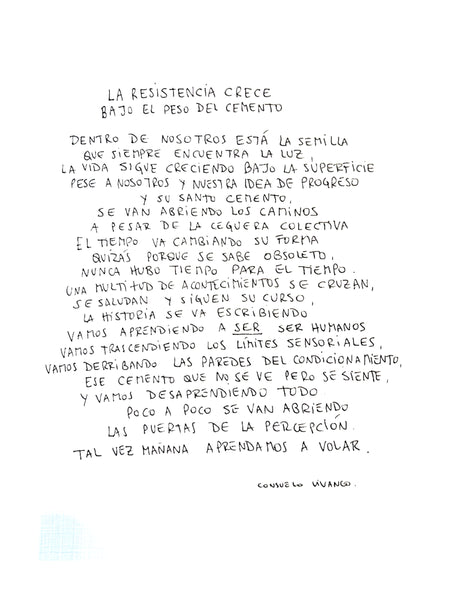 LA RESISTENCIA CRECE
BAJO EL PESO DEL CEMENTO
DENTRO DE NOSOTROS ESTÁ LA SEMILLA
QUE SIEMPRE ENCUENTRA LA LUZ,
LA VIDA SIGUE CRECIENDO BAJO LA SUPERFICIE
PESE A NOSOTROS Y NUESTRA IDEA DE PROGRESO
Y SU SANTO CEMENTO,
SE VAN ABRIENDO LOS CAMINOS
A PESAR DE LA CEGUERA COLECTIVA
EL TIEMPO VA CAMBIANDO SU FORMA
QUIZÁS PORQUE SE SABE OBSOLETO,
NUNCA HUBO TIEMPO PARA EL TIEMPO.
UNA MULTITUD DE ACONTECIMIENTOS SE CRUZAN,
SE SALUDAN Y SIGUEN SU CURSO,
LA HISTORIA SE VA ESCRIBIENDO
VAMOS APRENDIENDO A SER SER HUMANOS
VAMOS TRASCENDIENDO LOS LÍMITES SENSORIALES,
VAMOS DERRIBANDO LAS PAREDES DEL CONDICIONAMIENTO,
ESE CEMENTO QUE NO SE VE PERO SE SIENTE,
Y VAMOS DESAPRENDIENDO TODO
POCO A POCO SE VAN ABRIENDO
LAS PUERTAS DE LA PERCEPCIÓN.
TAL VEZ MAÑANA APRENDAMOS A VOLAR.
CONSUELO VIVANCO.